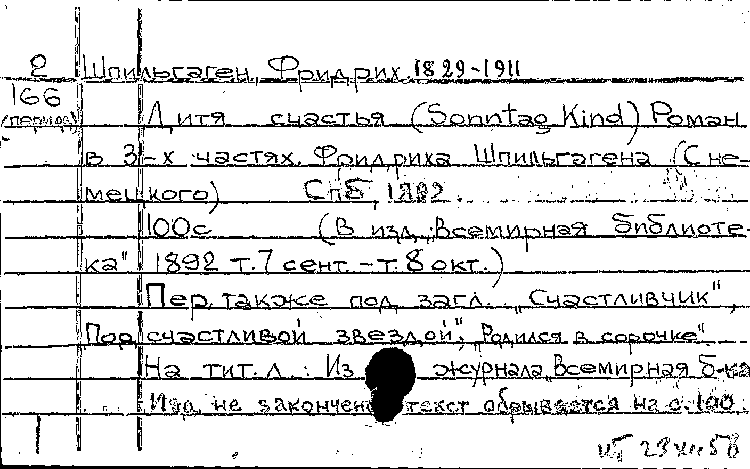 2 Шпильгаген, Фридрих 1829-1911
166
(период) Дитя счастья (Sonntag Kind) Роман
в 3-х частях. Фридриха Шпильгагена (С не-
мецкого) СПБ, 1892.
100с (В изд. "Всемирная библиоте-
ка" 1892 т.7 сент. - т.8 окт.)
Пер. также под загл. "Счастливчик",
Под счастливой звездой", "Родился в сорочке"
На тит. л.: Из журнала "Всемирная б-ка
Изд. не закончено текст обрывается на с. 100